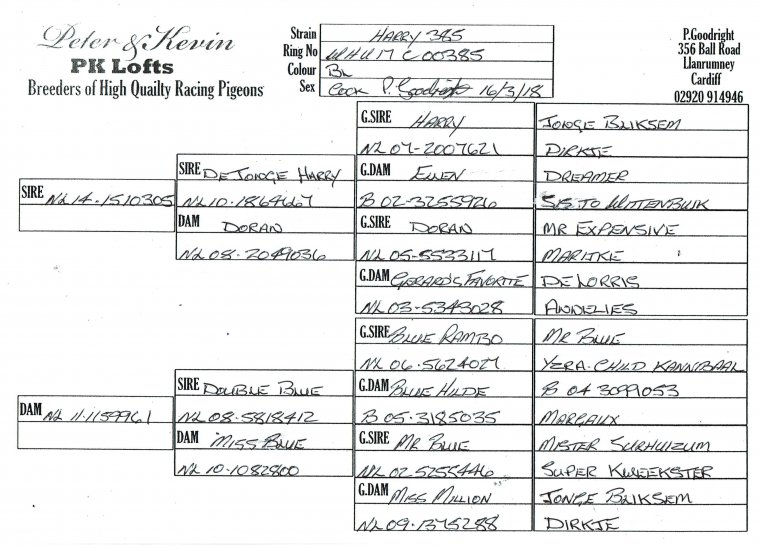 Peter & Kevin
PK Lofts
Breeders of High Quailty Racing Pigeons
Strain HARRY 385
Ring No WHU 17 C 00385
Colour BL
Sex COCK P. Goodright 16/3/18
P.Goodright
356 Ball Road
Llanrumney
Cardiff
02920 914946
SIRE NL 14-1510305
SIRE DE JONGE HARRY
NL 10-1864667
DAM DORAN
NL 08-2049036
G.SIRE HARRY
NL 07-2007621
G.DAM ELLEN
B 02-3255926
G.SIRE DORAN
NL 05-5533117
G.DAM GERARD'S FAVORITE
NL 03-5343028
JONGE BLIKSEM
DIRKJE
DREAMER
SIS TO WITTENBUIK
MR EXPENSIVE
MARITKE
DE LORRIS
ANNELIES
DAM NL 11-1159961
SIRE DOUBLE BLUE
NL 08-5818412
DAM MISS BLUE
NL 10-1082800
G.SIRE BLUE RAMBO
NL 06-5624027
G.DAM BLUE HILDE
B 05-3185035
G.SIRE MR BLUE
NL 02-5255446
G.DAM MISS MILLION
NL 09-1375288
MR BLUE
YZRA-CHILD KANNIBAAL
B 04 3099053
MARGAUX
MISTER SURHUIZUM
SUPER KWEEKSTER
JONGE BLIKSEM
DIRKJE